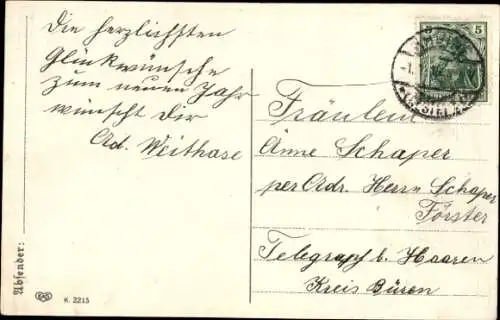 Die herzlichsten
Glückwünsche
zum neuen Jahr
wünscht dir
Ad. Weithase
Absender:
K. 2213
5
Fräulein
Anne Schaper
per Adr. Herrn Schaper
Förster
Telegraph b. Haaren
Kreis Büren